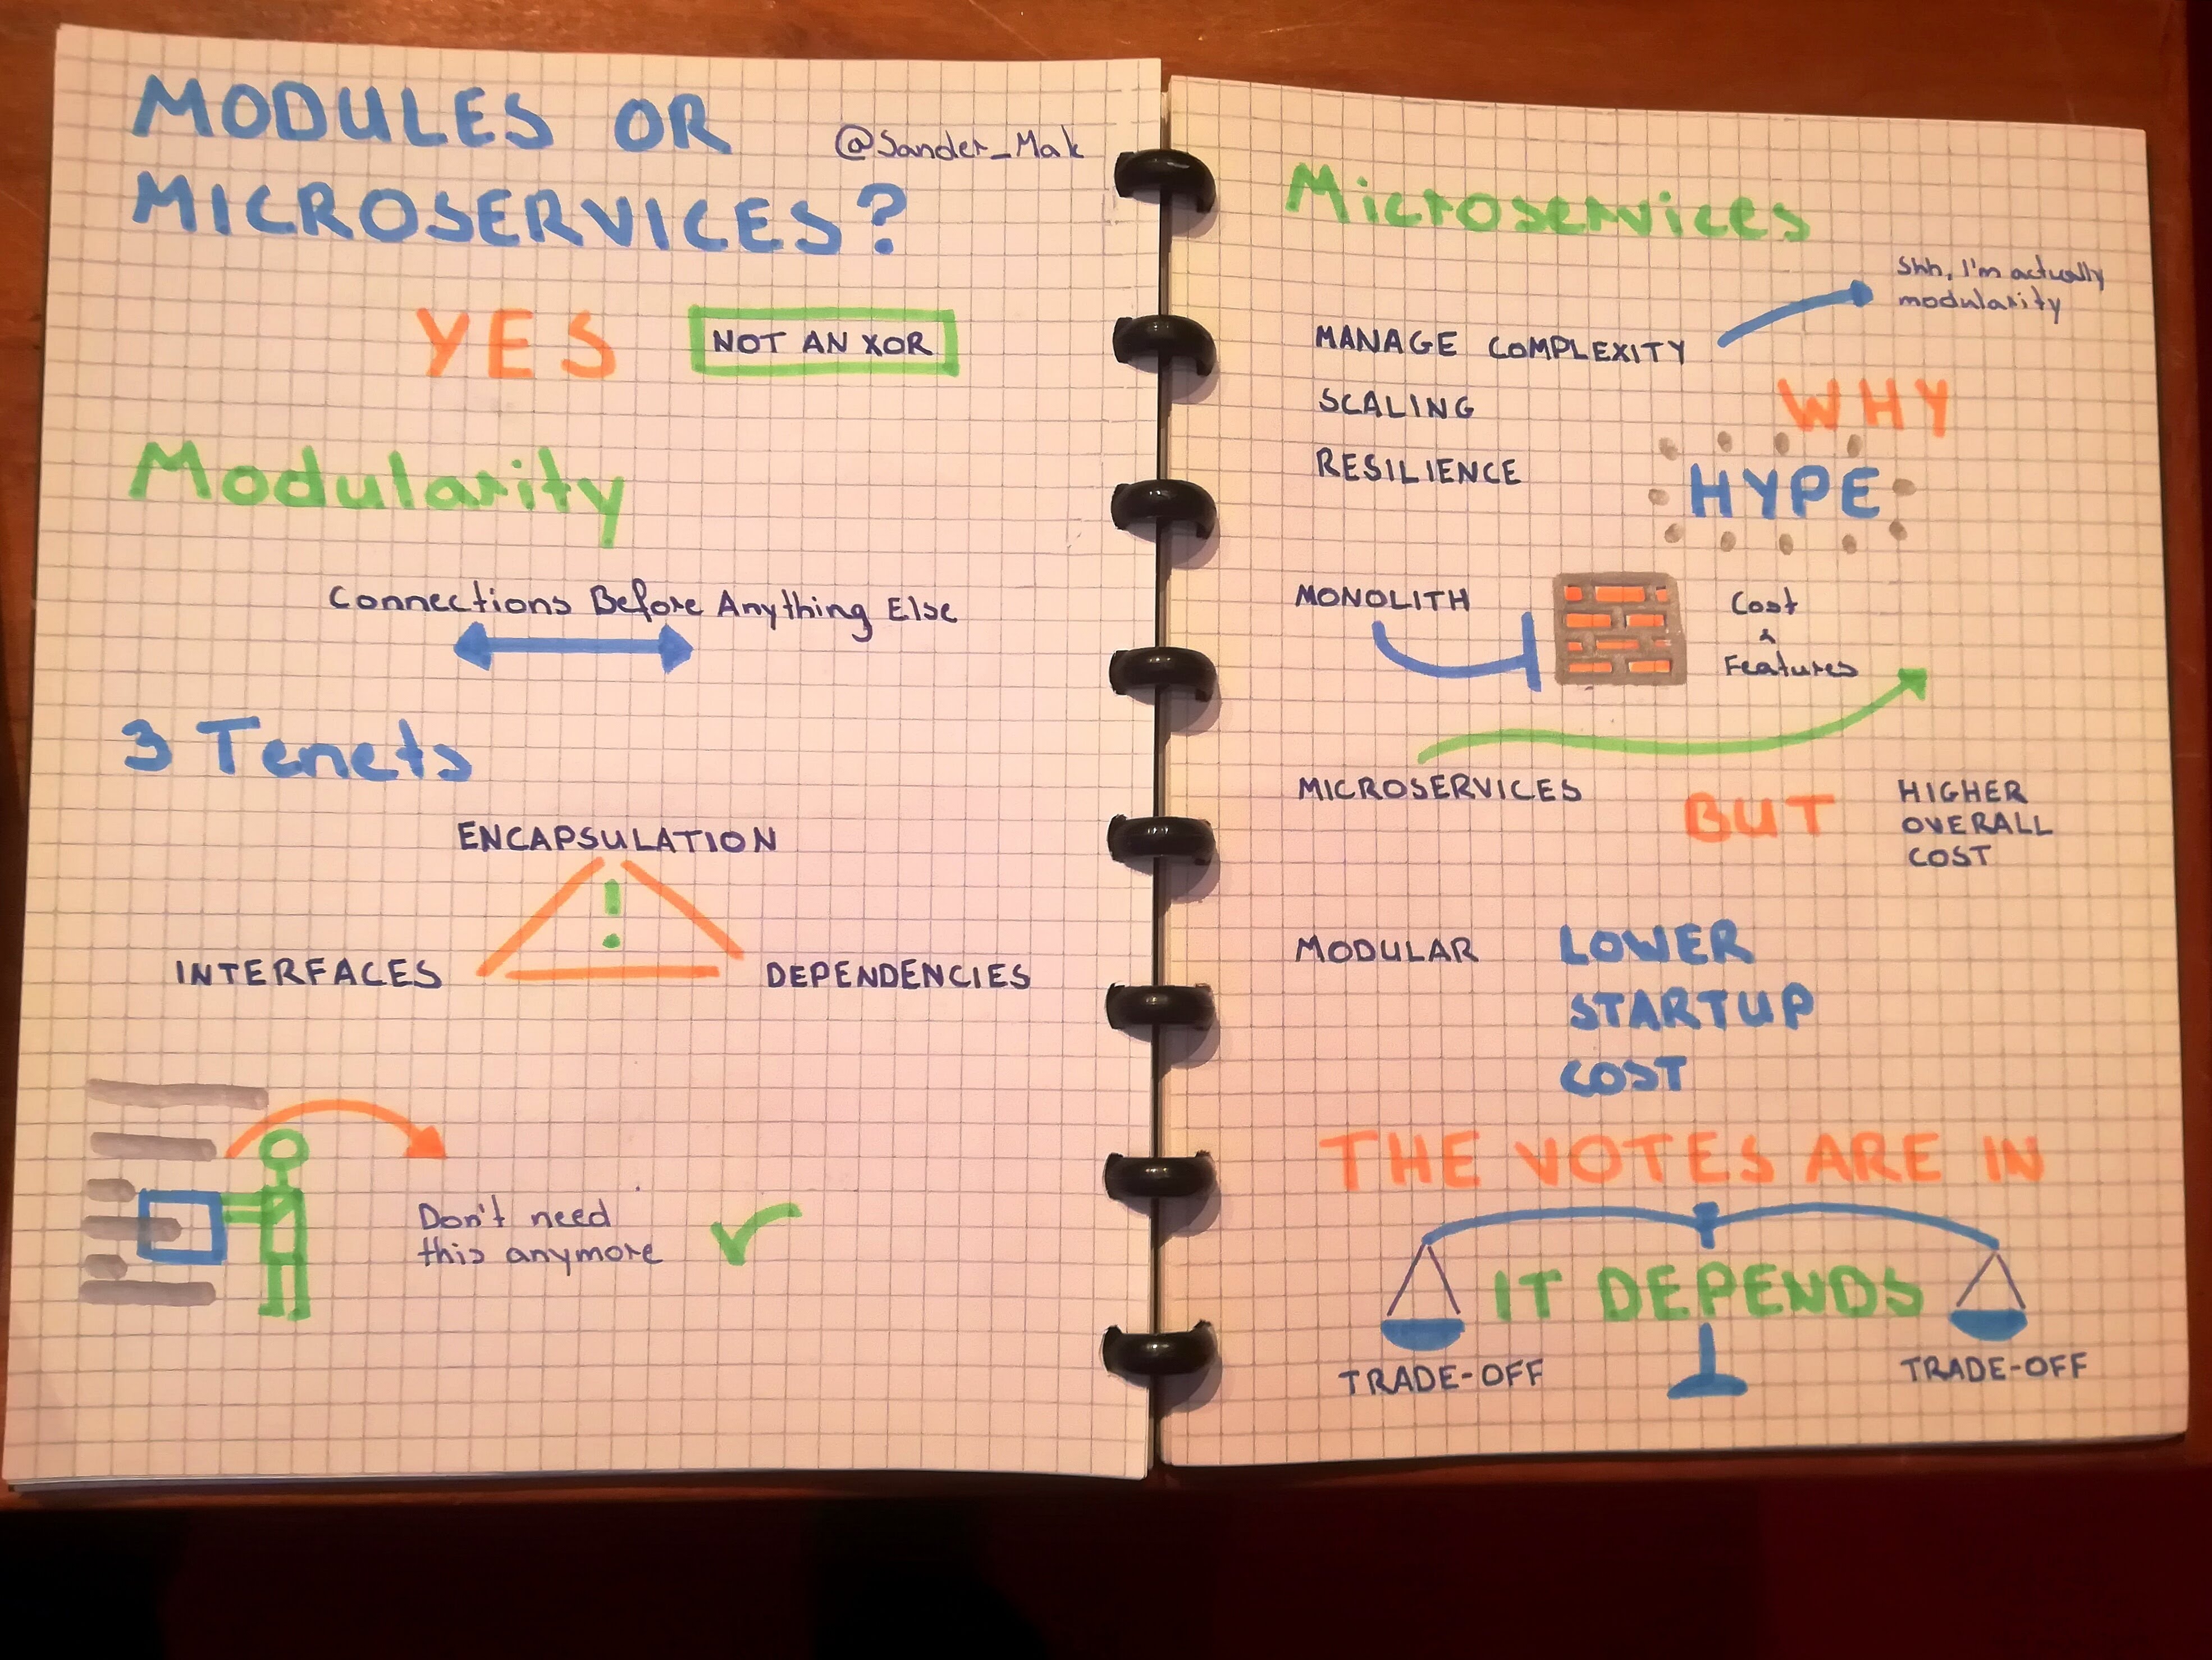 MODULES OR
@Sander_Mak
MICROSERVICES?
YES
NOT AN XOR
Modularity
Connections Before Anything Else
3 Tenets
ENCAPSULATION
!
INTERFACES
DEPENDENCIES
Don't need
this anymore
Microservices
Shh, I'm actually
modularity
MANAGE COMPLEXITY
SCALING
RESILIENCE
WHY
HYPE
MONOLITH
Cost
&
Features
MICROSERVICES
BUT
HIGHER
OVERALL
COST
MODULAR
LOWER
STARTUP
COST
THE VOTES ARE IN
IT DEPENDS
TRADE-OFF
TRADE-OFF